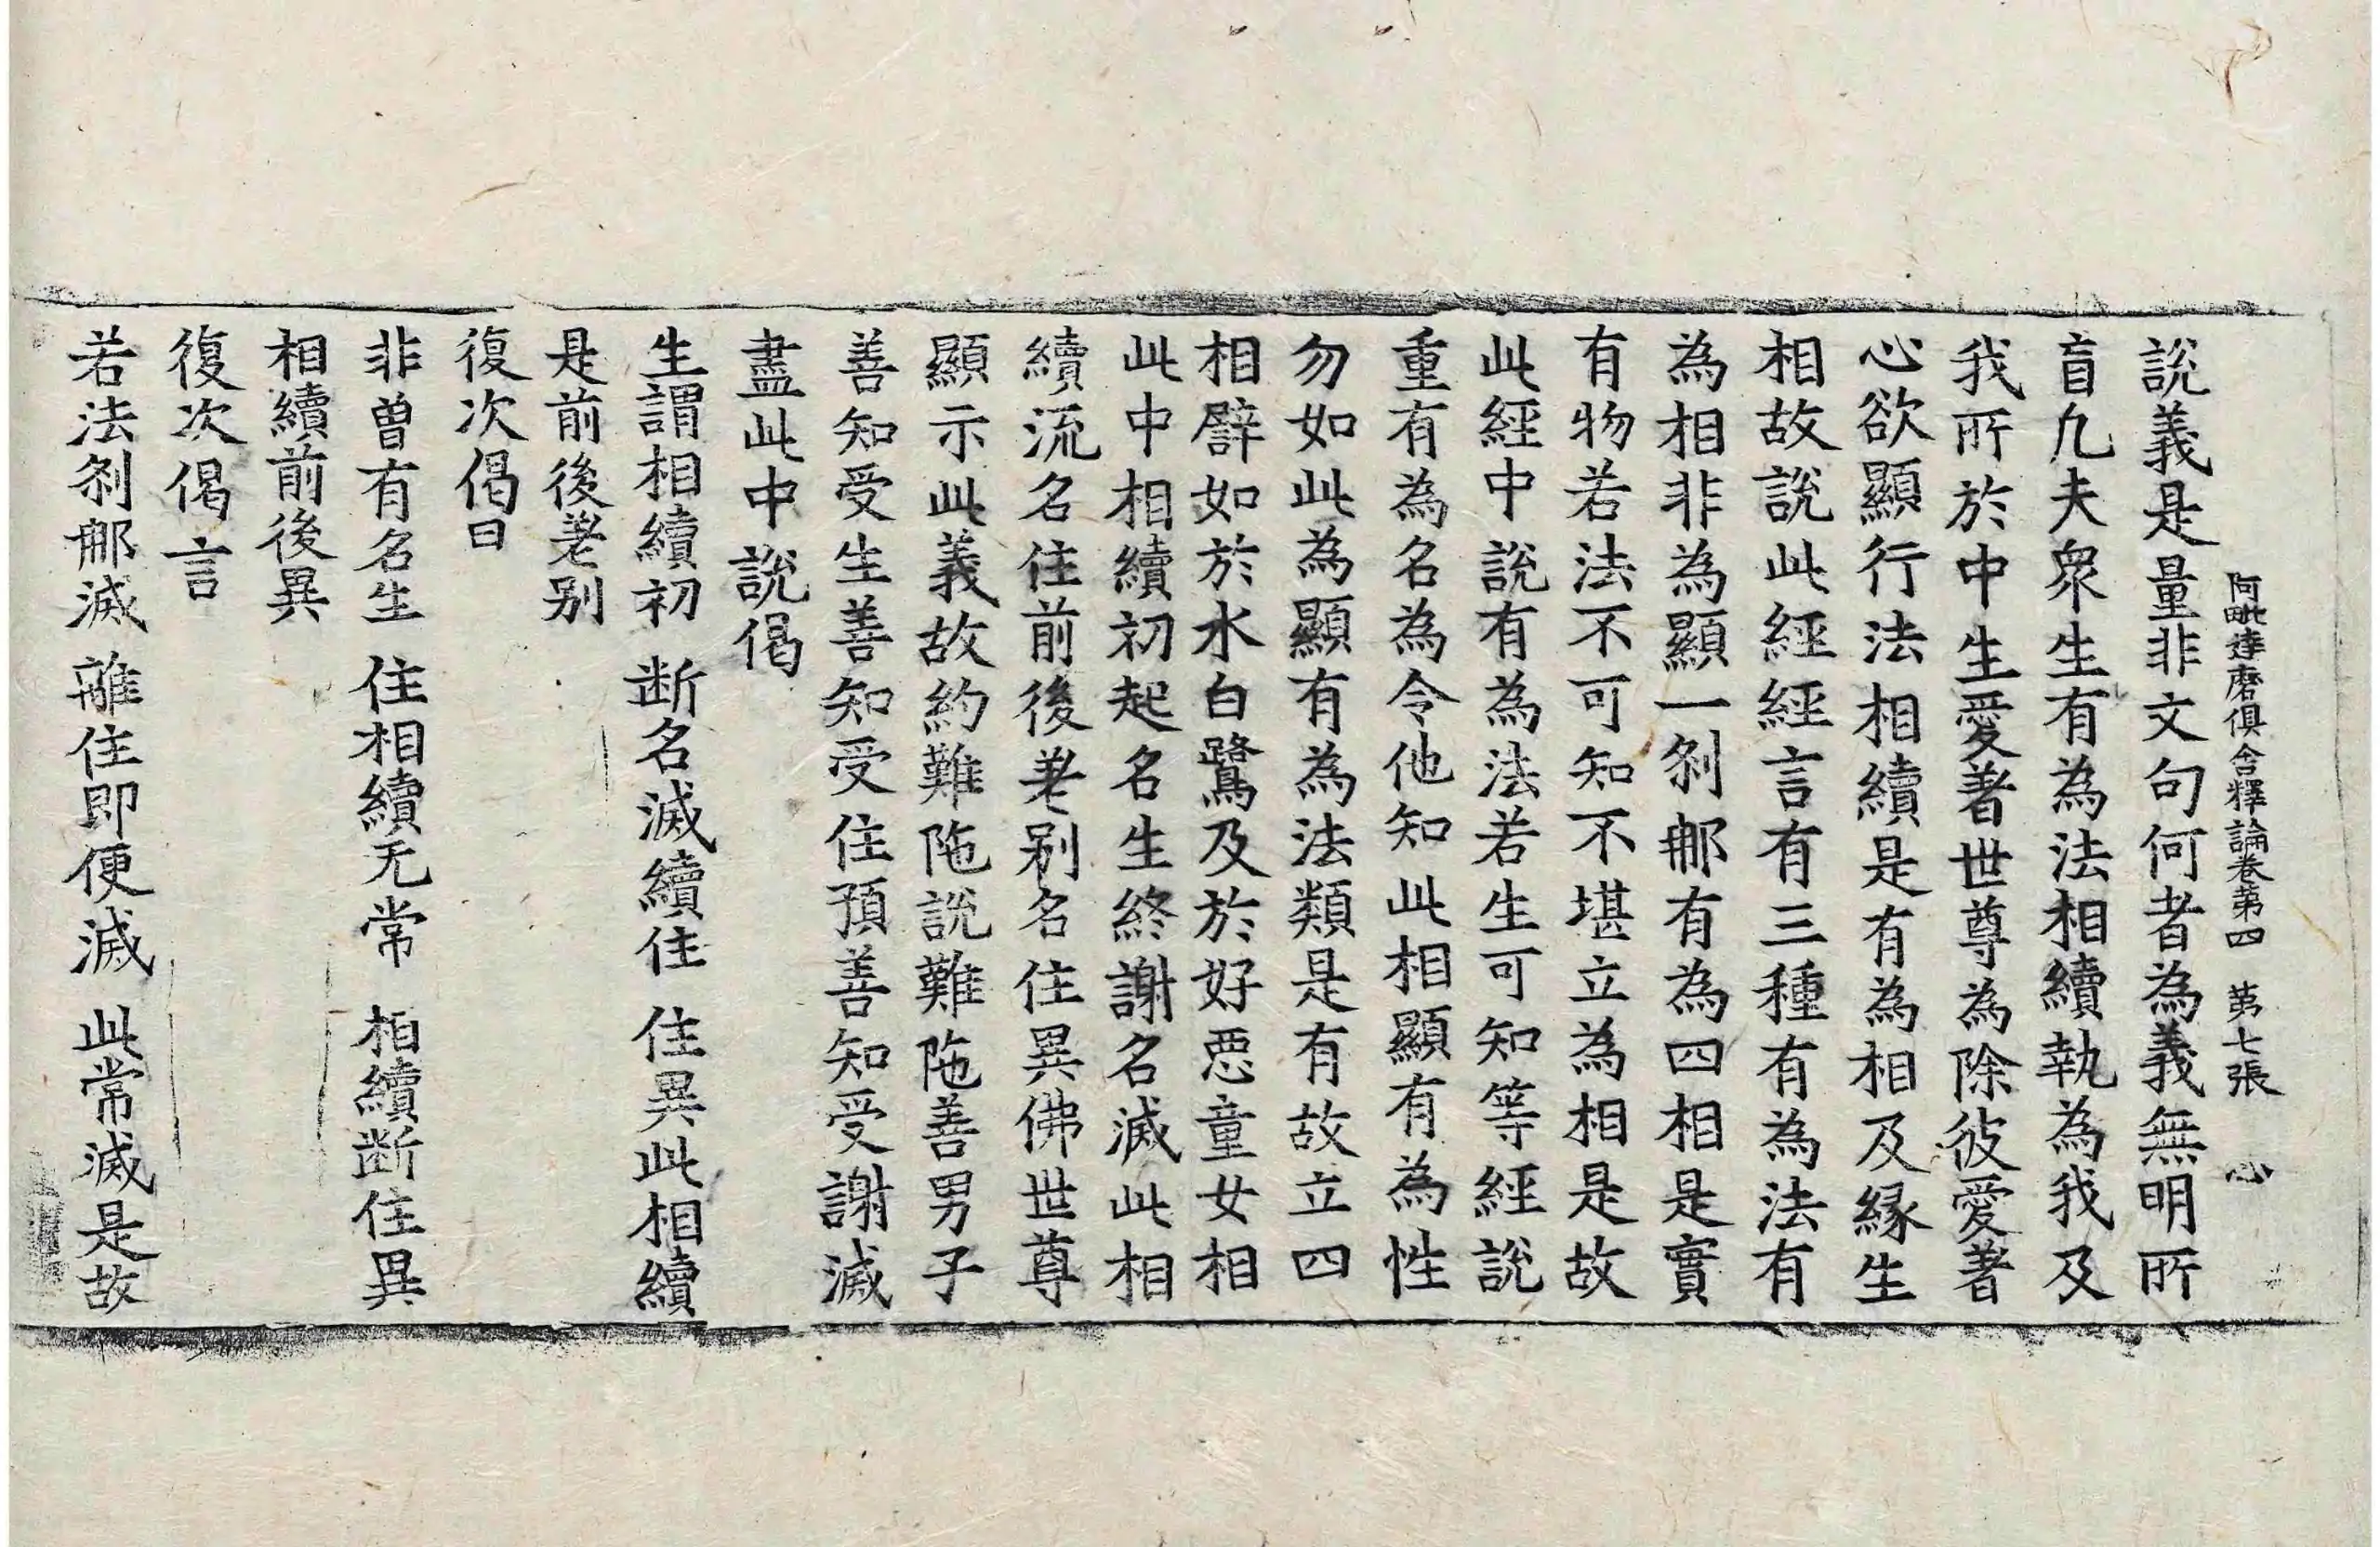 阿毗達磨俱舍釋論卷第四 第七張 心
說義是量非文句何者為義無明所
盲凡夫衆生有為法相續執為我及
我所於中生愛著世尊為除彼愛著
心欲顯行法相續是有為相及緣生
相故說此經經言有三種有為法有
為相非為顯一剎那有為四相是實
有物若法不可知不堪立為相是故
此經中說有為法若生可知等經說
重有為名為令他知此相顯有為性
勿如此為顯有為法類是有故立四
相譬如於水白鷺及於好惡童女相
此中相續初起名生終謝名滅此相
續流名住前後差別名住異佛世尊
顯示此義故約難陁說難陁善男子
善知受生善知受住預善知受謝滅
盡此中說偈
生謂相續初 断名滅續住 住異此相續
是前後差別
復次偈曰
非曾有名生 住相續无常 相續断住異
相續前後異
復次偈言
若法剎那滅 離住即便滅 此常滅是故